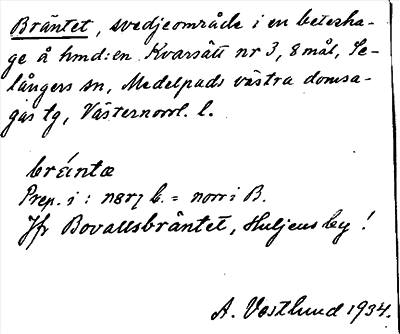 Bräntet, svedjeområde i en betesha-
ge å hmd:en Kvarsätt nr 3, 8 mål, Se-
långers sn, Medelpads västra domsa-
gas tg, Västernorrl. l.
bräntæ
Prep. i : norr i B.
Jfr Bovallsbräntet, Huljens by !
A. Vestlund 1934.